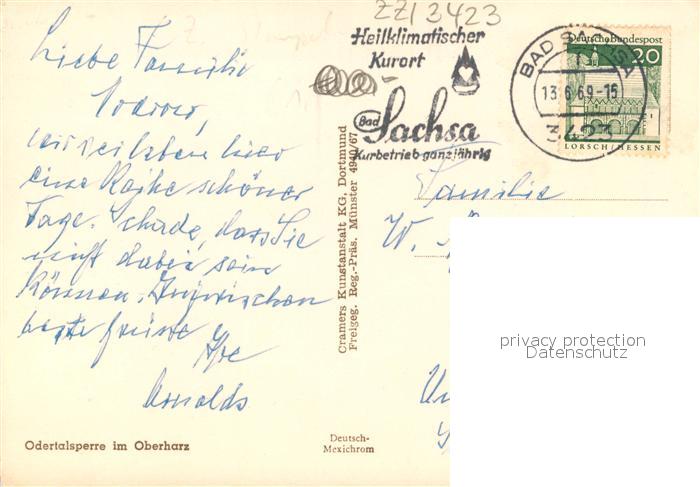 ZZ13423
Heilklimatischer
Kurort
Bad Sachsa
Kurbetrieb ganzjährig
BAD SACHSA
13.6.69-15
3423
Deutsche Bundespost
20
LORSCH/HESSEN
Liebe Familie
wir erleben hier
eine Reihe schöner
Tage. Schade, dass Sie
nicht dabei sein
können. Inzwischen
beste Grüsse
Ihre
Arnolds
Familie
W.
Odertalsperre im Oberharz
Deutsch-
Mexichrom
Cramers Kunstanstalt KG, Dortmund
Freigeg. Reg.-Präs. Münster 4940/67
privacy protection
Datenschutz